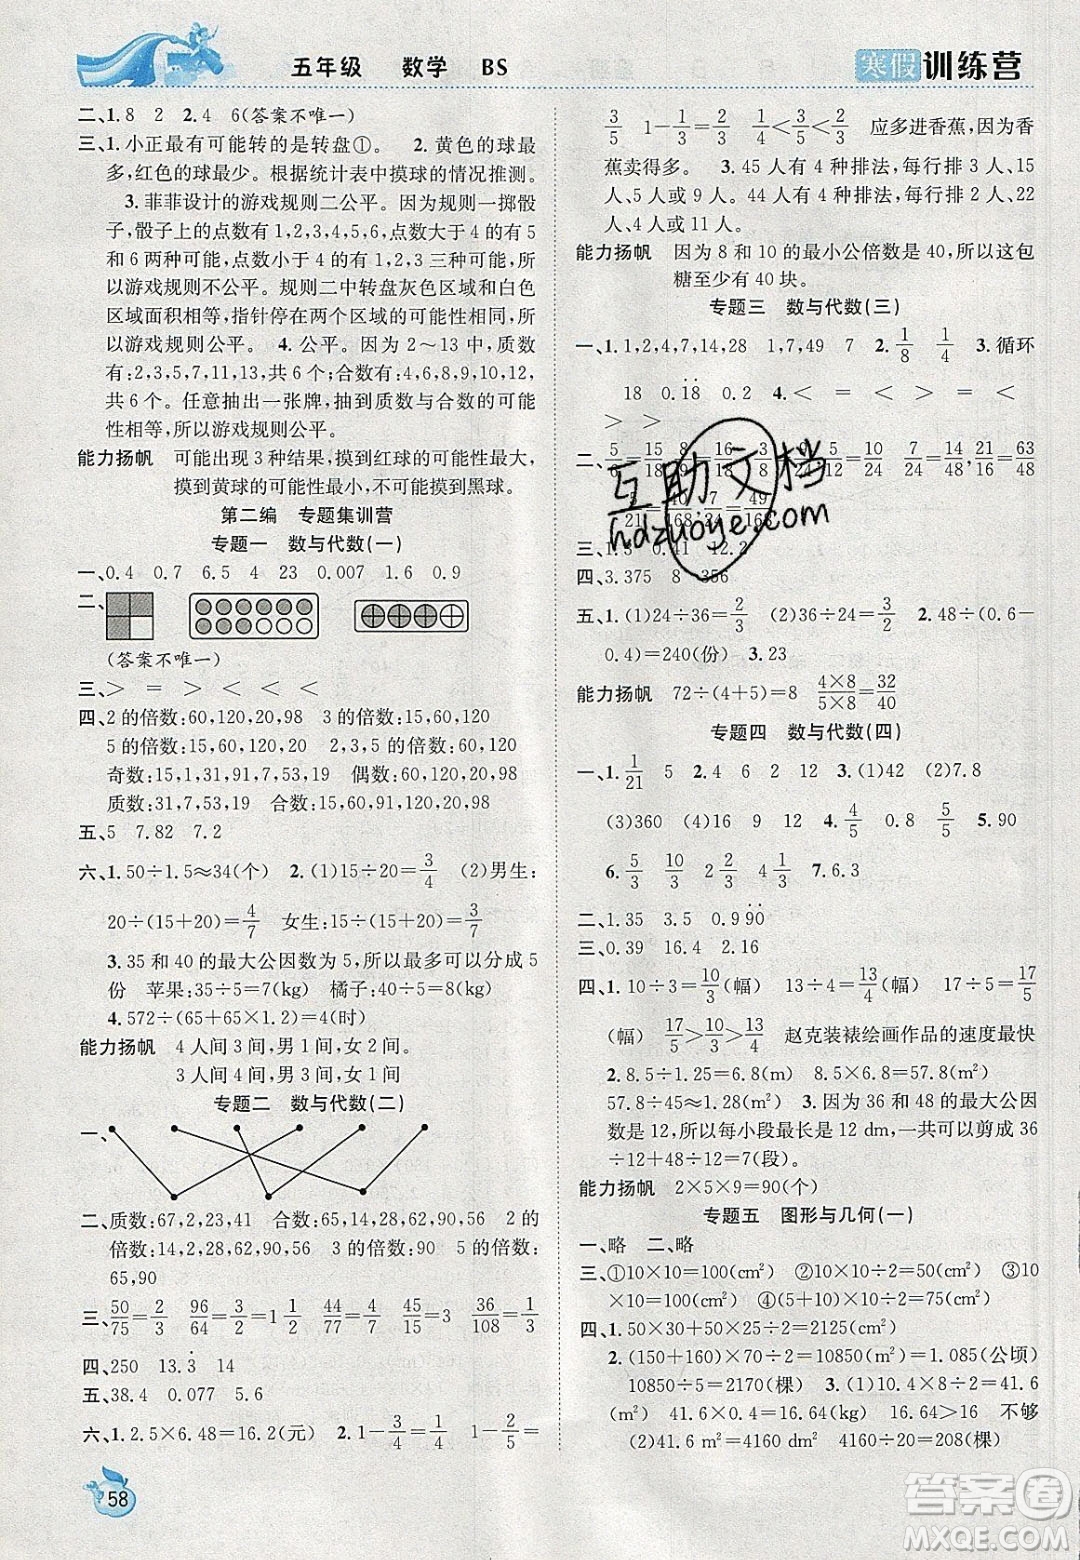 五年级 数学 BS
寒假训练营
二、1.8 2 2.4 6(答案不唯一)
三、1.小正最有可能转的是转盘①。 2.黄色的球最
多,红色的球最少。根据统计表中摸球的情况推测。
3.菲菲设计的游戏规则二公平。因为规则一掷骰
子,骰子上的数有1,2,3,4,5,6,点数大于4的有5
和6两种可能,点数小于4的有1,2,3三种可能,所
以游戏规则不公平。规则二中转盘灰色区域和白色
区域面积相等,指针停在两个区域的可能性相等,所
以游戏规则公平。 4.公平。因为2～13中,质数
有:2,3,5,7,11,13,共6个;合数有:4,6,8,9,10,
12,共6个。任意抽出一张牌,抽到质数与合数的可
能性相等,所以游戏规则公平。
能力扬帆 可能出现3种结果,摸到红球的可能性最大,
摸到黄球的可能性最小,不可能摸到黑球。
第二编 专题集训营
专题一 数与代数(一)
一、0.4 0.7 6.5 4 23 0.007 1.6 0.9
二、
(答案不唯一)
三、＞ ＝ ＞ ＜ ＜ ＜
四、2的倍数:60,120,20,98 3的倍数:15,60,120
5的倍数:15,60,120,20 2,3,5的倍数:60,120
奇数:15,1,31,91,7,53,19 偶数:60,120,20,98
质数:31,7,53,19 合数:15,60,120,91,20,98
五、5 7.82 7.2
六、1.50÷1.5≈34(个) 2.(1)15÷20=3/4 (2)男生:
20÷(15+20)=4/7 女生:15÷(15+20)=3/7
3.35和40的最大公因数为5,所以最多可以分成5
份 苹果:35÷5=7(kg) 橘子:40÷5=8(kg)
4.572÷(65+65×1.2)=4(时)
能力扬帆 4人间3间,男1间,女2间。
3人间4间,男3间,女1间
专题二 数与代数(二)
一、
二、质数:67,2,23,41 合数:65,14,28,32,90,56 2的
倍数:2,14,28,32,90,56 3的倍数:90 5的倍数:
65,90
三、50/75=2/3 96/64=3/2=1 1/2 34/51=2/3 45/15=3 36/108=1/3
四、250 13.3̇ 14
五、38.4 0.077 5.6
六、1.2.5×6.48=16.2(元) 2.1-3/4=1/4 1-2/5=
3/5 1-1/3=2/3 1/4<3/5<2/3 应多进香蕉,因为香
蕉卖得多。 3.45人有4种排法,每行排3人、15
人、5人或9人。44人有4种排法,每行排2人、22
人、4人或11人。
能力扬帆 因为8和10的最小公倍数是40,所以这包
糖至少有40块。
专题三 数与代数(三)
一、1.1,2,4,7,14,28 1,7,49 7 2.1/8 1/4 3.循环
18 0.1̇8̇ 0.2 4.＜ ＝ ＞ ＜
＞ ＞
二、5/6=15/18 5/12=10/24 7/24 9/24 11/21=63
三、1.5 0.41 12.2
四、3.375 8 356
五、1.(1)24÷36=2/3 (2)36÷24=3/2 2.48÷(0.6-
0.4)=240(份) 3.23
能力扬帆 72÷(4+5)=8 4×8/5×8=32/40
专题四 数与代数(四)
一、1.1/21 5 2.4 6 2 12 3.(1)42 (2)7.8
(3)360 (4)16 9 12 4.4/5 0.8 4/5 5.90
6.5/3 10/3 2 2/3 4 1/3 7.6.3
二、1.35 3.5 0.99̇0̇
三、0.39 16.4 2.16
四、1.10÷3=10/3(幅) 13÷4=13/4(幅) 17÷5=17/5
(幅) 17/5>10/3>13/4 赵克装裱绘画作品的速度最快
2.8.5÷1.25=6.8(m) 8.5×6.8=57.8(m²)
57.8÷45≈1.28(m²) 3.因为36和48的最大公因
数是12,所以每小段最长是12 dm,一共可以剪成36
÷12+48÷12=7(段)。
能力扬帆 2×5×9=90(个)
专题五 图形与几何(一)
一、略 二、略
三、①10×10=100(cm²) ②10×10÷2=50(cm²) ③10
×10=100(cm²) ④(5+15)×10÷2=100(cm²)
四、1.50×30+50×25÷2=2125(cm²)
2.(150+160)×70÷2=10850(m²)=1.085(公顷)
10850÷5=2170(棵) 3.(1)5.2×16÷2=41.6
(m²) 41.6×0.4=16.64(kg) 16.64>16 不够
(2)104×80÷2=4160(m²) 4160÷20=208(棵)
58
互助文档
hdzuoye.com
答案圈
MXQE.COM